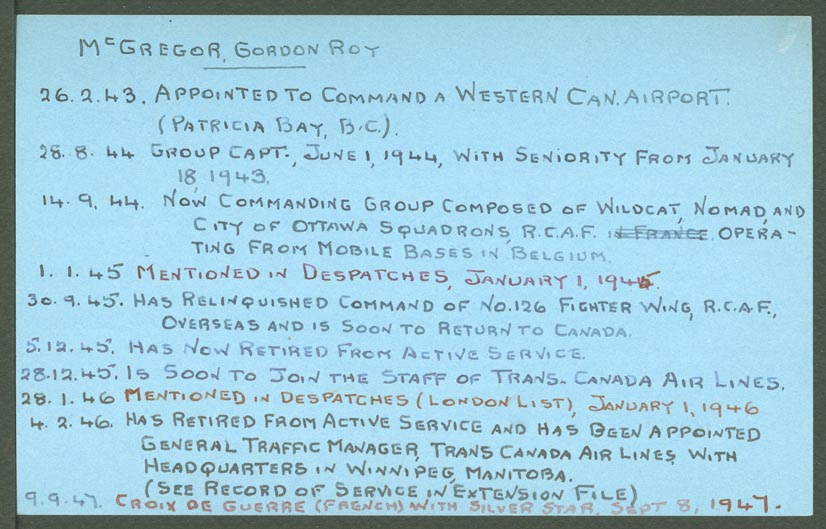 McGREGOR, GORDON ROY
26.2.43. APPOINTED TO COMMAND A WESTERN CAN. AIRPORT.
(PATRICIA BAY, B.C.).
28.8.44 GROUP CAPT., JUNE 1, 1944, WITH SENIORITY FROM JANUARY
18, 1943.
14.9.44. NOW COMMANDING GROUP COMPOSED OF WILDCAT, NOMAD, AND
CITY OF OTTAWA SQUADRONS, R.C.A.F. IN FRANCE. OPERA-
TING FROM MOBILE BASES IN BELGIUM.
1.1.45 MENTIONED IN DESPATCHES, JANUARY 1, 1945.
30.9.45. HAS RELINQUISHED COMMAND OF NO. 126 FIGHTER WING, R.C.A.F.,
OVERSEAS AND IS SOON TO RETURN TO CANADA.
5.12.45. HAS NOW RETIRED FROM ACTIVE SERVICE.
28.12.45. IS SOON TO JOIN THE STAFF OF TRANS-CANADA AIR LINES.
28.1.46 MENTIONED IN DESPATCHES (LONDON LIST), JANUARY 1, 1946
4.2.46. HAS RETIRED FROM ACTIVE SERVICE AND HAS BEEN APPOINTED
GENERAL TRAFFIC MANAGER, TRANS CANADA AIR LINES, WITH
HEADQUARTERS IN WINNIPEG, MANITOBA.
(SEE RECORD OF SERVICE IN EXTENSION FILE)
9.9.47. CROIX DE GUERRE (FRENCH) WITH SILVER STAR, SEPT 8, 1947.